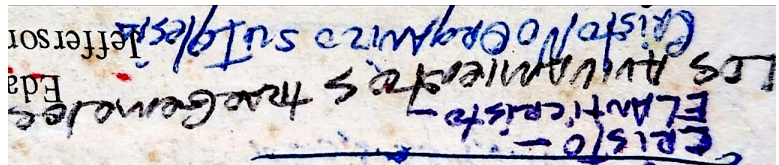 CRISTO –
EL ANTICRISTO –
LOS AViVAMieNtos trae Gemelos
Eda
CRisto No ORgANizo su IglesiA
Jefferson